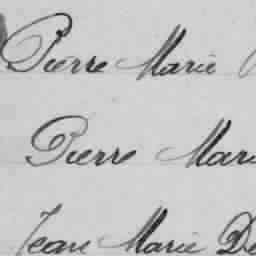 Pierre Marie
Pierre Mari
Jean Marie De